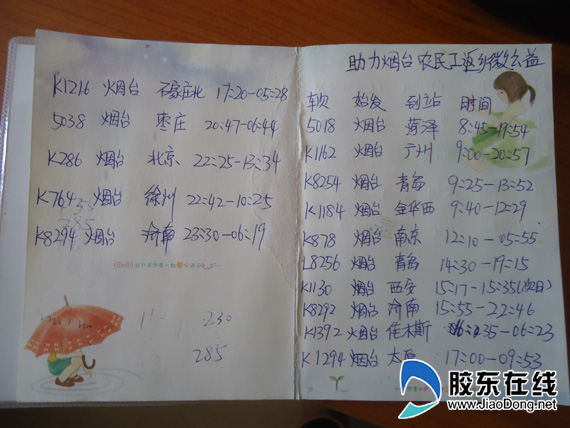 K1216 烟台 石家庄北 17:20-05:28
5038 烟台 枣庄 20:47-06:44
K286 烟台 北京 22:25-13:34
K764 烟台 徐州 22:42-10:25
K8294 烟台 济南 23:30-06:19
230
285
助力烟台农民工返乡微公益
车次 始发 到站 时间
5018 烟台 菏泽 8:45-19:54
K1162 烟台 广州 9:00-20:57
K8254 烟台 青岛 9:25-13:52
K1184 烟台 金华西 9:40-12:29
K878 烟台 南京 12:10-05:55
L8256 烟台 青岛 14:30-19:15
K1130 烟台 西安 15:17-15:35(次日)
K8292 烟台 济南 15:55-22:46
K1392 烟台 佳木斯 16:35-06:23
K1294 烟台 太原 17:00-09:53
胶东在线
www.JiaoDong.net